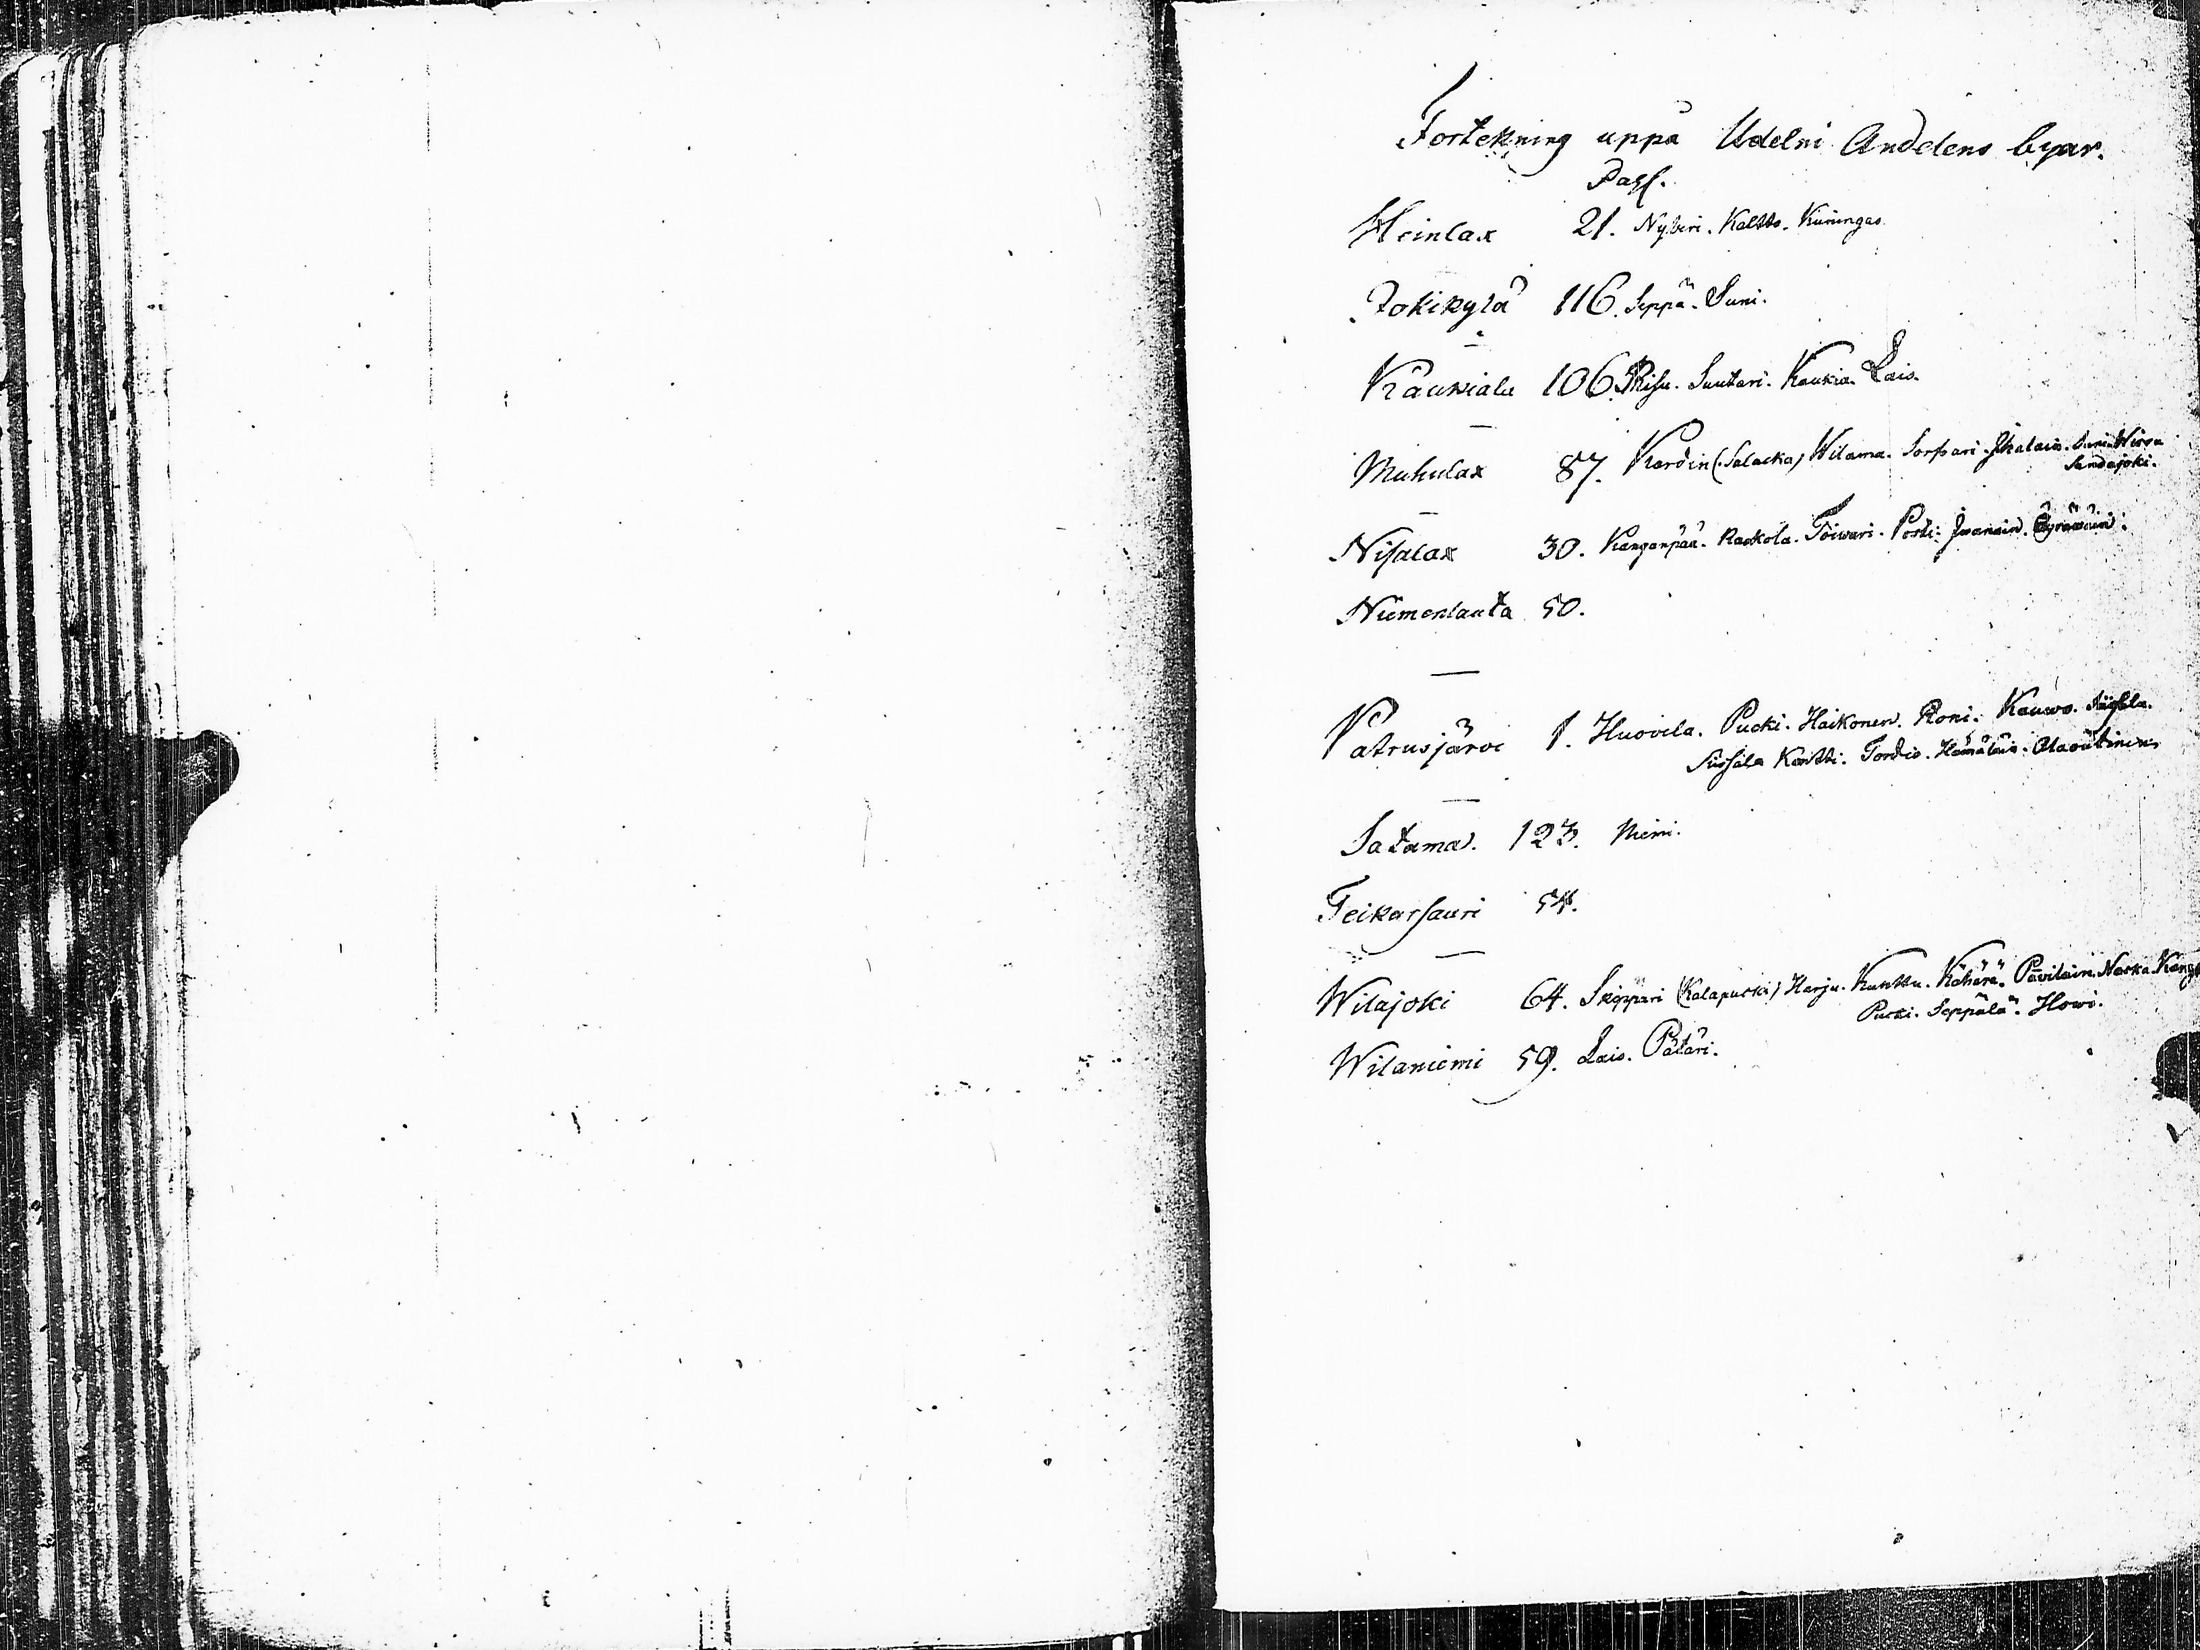 Fortekning uppå Udelni Andelens byar.
Pagi.
Heinlax 21. Nyberi. Keltto. Kuningas.
Jokikylä 116. Seppä. Suni.
Kaukiala 106. Suutari. Kaukia. Lais.
Muhulax 87. (Salacka) Wilama. Sorsari. Ihalain. Suni. Wirra
Sandajoki.
Nisalax 30. Kanganpää. Rackola. Toiwari. Portti. Iwanain. Äyräwäin.
Niemenlauta 50.
Patrusjärvi 1. Huovila. Pucki. Haikonen. Roni. Kauwo.
Kontti. Tordis. Hämäläin.
Satama. 123. Niemi.
Teikarsauri 54.
Wilajoki 64. Skippari (Kalapucki) Harju. Kunttu. Kähärä. Päviläin. Narka.
Pucki. Seppälä. Howi.
Wilaniemi 59. Lais. Pätäri.